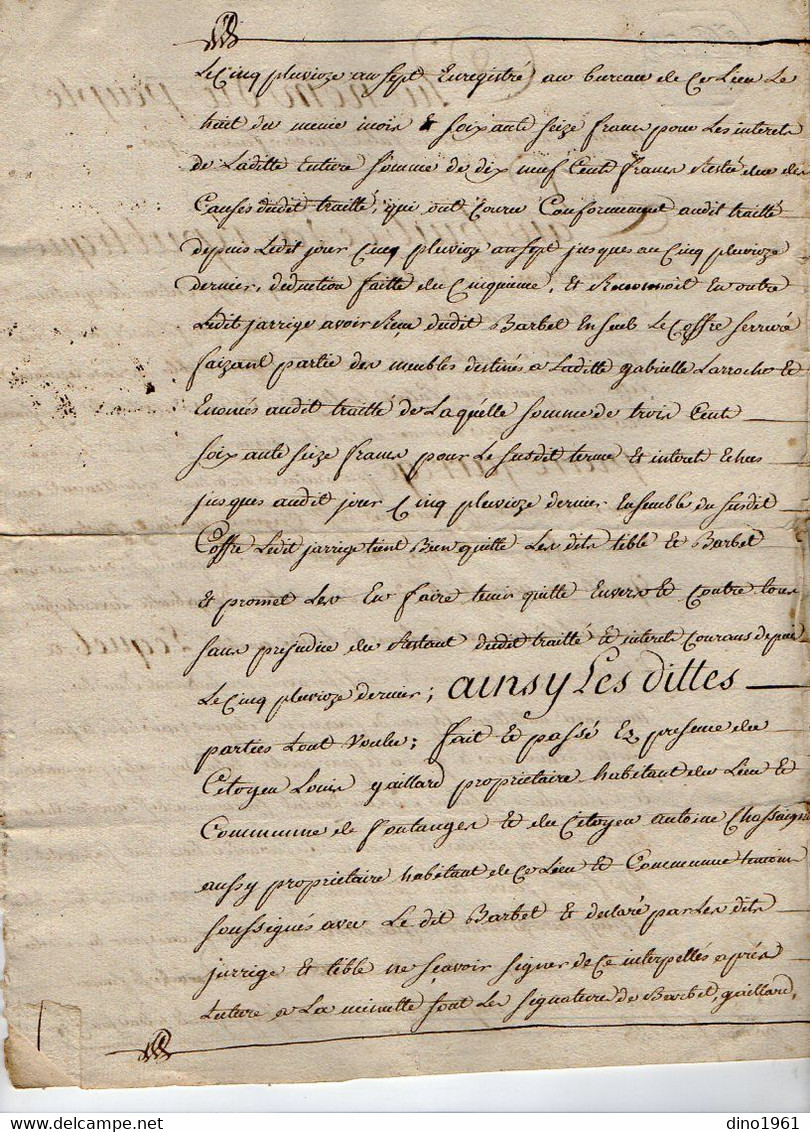 Le Cinq pluvioze an sept Enregistré au bureau de Ce Lieu Le
huit du meme mois & soixante seize francs pour Les interets
de Laditte entiere somme de dix neuf Cent francs Restée due des
Causes dudit traitté, qui ont Couru Conformement audit traitté
depuis Ledit jour Cinq pluvioze an sept jusques au Cinq pluvioze
dernier, deduction faitte du Cinquieme, Et Reconnoit En outre
Ledit jarrige avoir Reçu dudit Barbet En seul Le Coffre serruré
faizant partie des meubles destinés a Laditte gabrielle Larroche Et
Enoncés audit traitté de Laquelle somme de trois Cent
soixante seize francs pour Le susdit terme Et interet Echus
jusques audit jour Cinq pluvioze dernier Ensemble du susdit
Coffre Ledit jarrige tient Bien quitte Les dits tible Et Barbet
Et promet Les En faire tenir quitte Envers Et Contre tous
sans prejudice du Restant dudit traitté Et interets Courans depuis
Le Cinq pluvioze dernier; ainsy Les dittes
parties L'ont Voulu; fait Et passé En presence du
Citoyen Louis gaillard proprietaire habitant du Lieu Et
Commune de fontanges Et du Citoyen antoine Chossaigne
aussy proprietaire habitant de Ce Lieu Et Commune temoins
soussignés avec Le dit Barbet Et declaré par Les dits
jarrige Et tible ne sçavoir signer de Ce interpellés après
Lecture a La minutte sont Les signatures de Barbet, gaillard,
dino1961